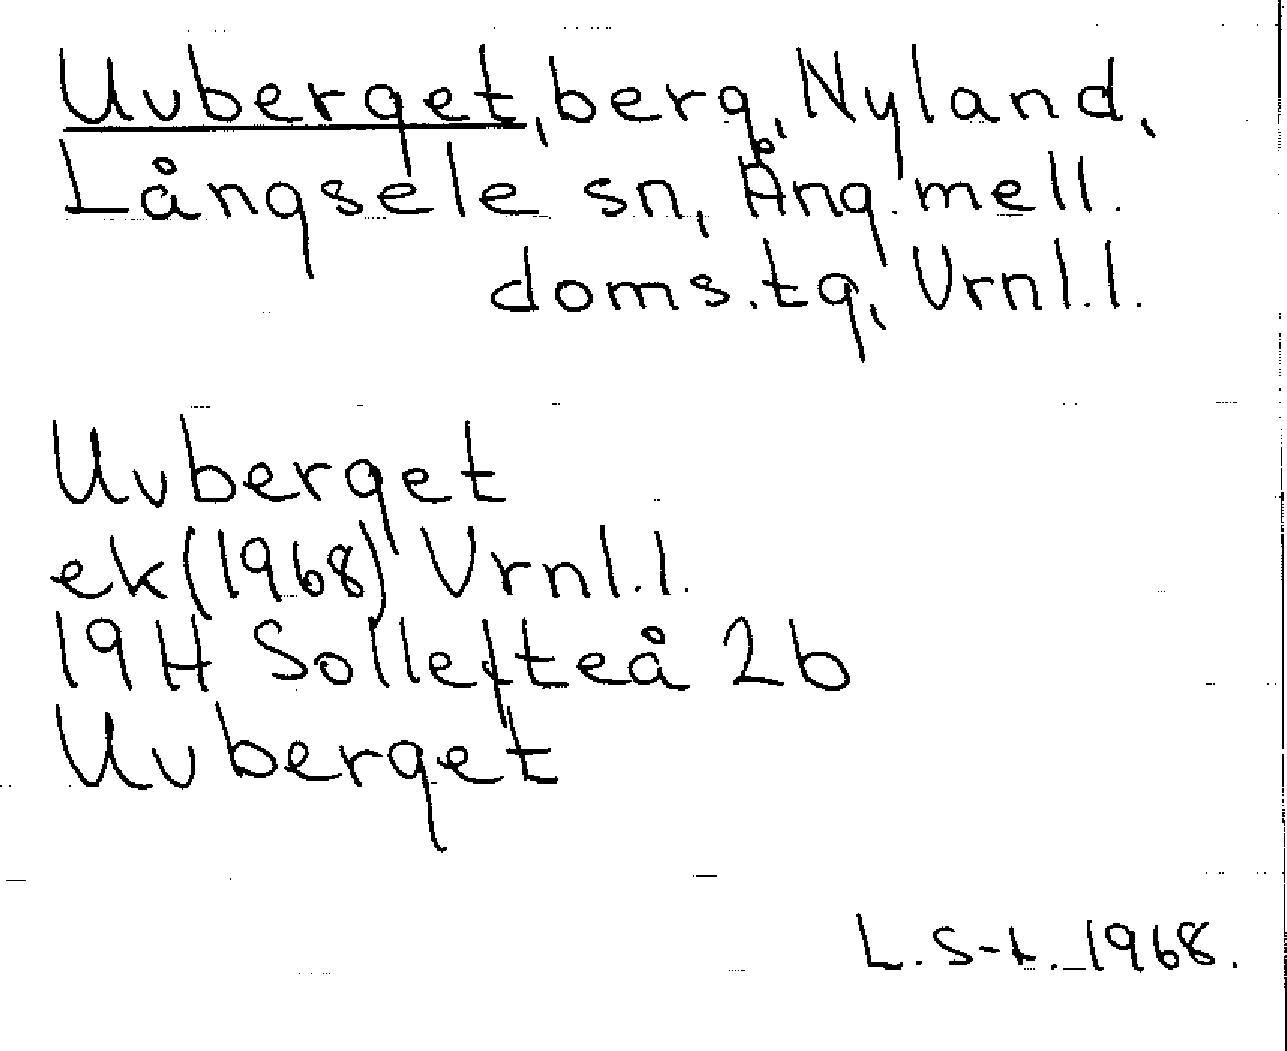 Uvberget, berg, Nyland,
Långsele sn, Ång. mell.
doms.tg, Vrnl.l.
Uvberget
ek (1968) Vrnl.l.
19H Sollefteå 2b
Uvberget
L. S-t. 1968.